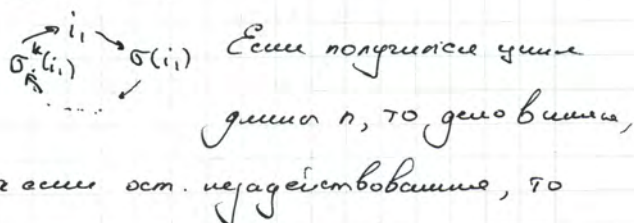 i₁
σᵏ(i₁) σ(i₁) Если получился цикл
.....
длины n, то дело в шляпе,
а если ост. незадействованные, то